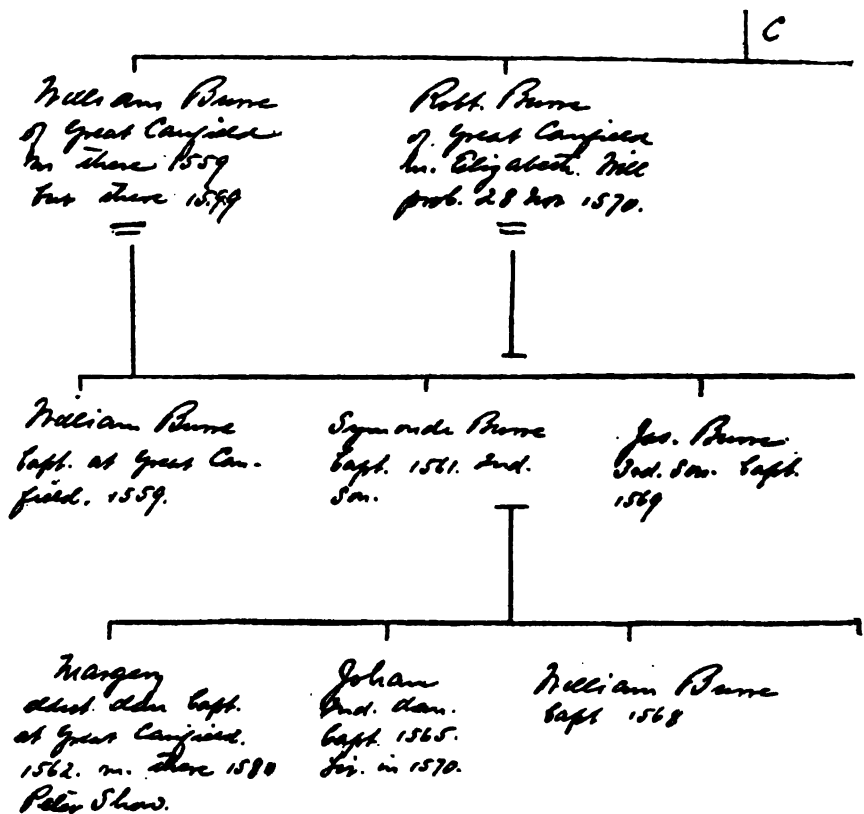 C
William Burre
of Great Canfield
m there 1559
bur there 1599
Robt. Burre
of Great Canfield
m. Elizabeth. Will
prob. 28 Nov 1570.
William Burre
bapt. at Great Can-
field. 1559.
Symonde Burre
bapt. 1561. 2nd.
son.
Jas. Burre.
3rd. son. bapt.
1569
Margery
eldest. dau bapt.
at Great Canfield.
1562. m. there 1580
Peter Shaw.
Johan
2nd. dau.
bapt. 1565.
liv. in 1570.
William Burre
bapt 1568